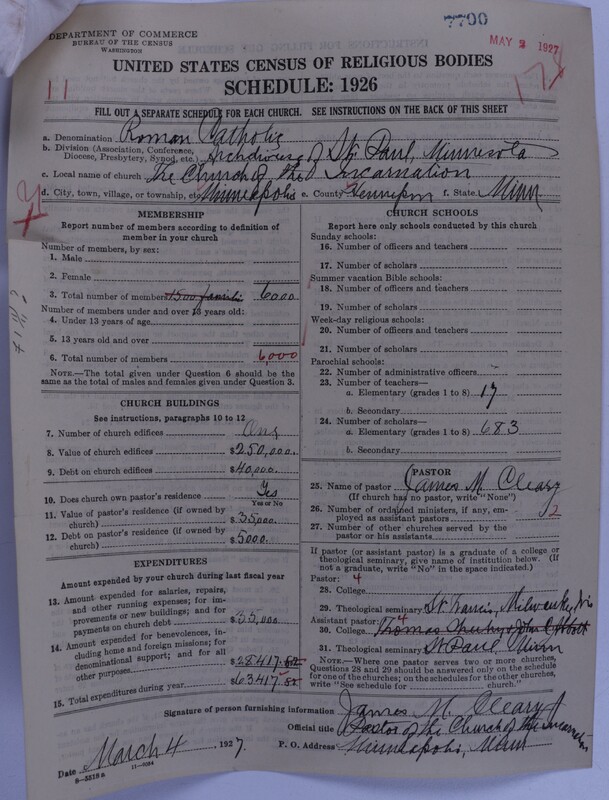 DEPARTMENT OF COMMERCE
BUREAU OF THE CENSUS
WASHINGTON
MAY 2 1927
UNITED STATES CENSUS OF RELIGIOUS BODIES
SCHEDULE: 1926
11
FILL OUT A SEPARATE SCHEDULE FOR EACH CHURCH. SEE INSTRUCTIONS ON THE BACK OF THIS SHEET
a. Denomination Roman Catholic
b. Division (Association, Conference, Diocese, Presbytery, Synod, etc.) Archdiocese of St. Paul, Minnesota
c. Local name of church The Church of the Incarnation
d. City, town, village, or township, etc. Minneapolis e. County Hennepin f. State Minn
MEMBERSHIP
Report number of members according to definition of member in your church
Number of members, by sex:
1. Male
2. Female
3. Total number of members 1500 families 6000
Number of members under and over 13 years old:
4. Under 13 years of age
5. 13 years old and over
6. Total number of members 6,000
NOTE.—The total given under Question 6 should be the same as the total of males and females given under Question 3.
CHURCH BUILDINGS
See instructions, paragraphs 10 to 12
7. Number of church edifices One
8. Value of church edifices $250,000.
9. Debt on church edifices $40,000.
10. Does church own pastor's residence? Yes
Yes or No
11. Value of pastor's residence (if owned by church) $35,000.
12. Debt on pastor's residence (if owned by church) $5000.
EXPENDITURES
Amount expended by your church during last fiscal year
13. Amount expended for salaries, repairs, and other running expenses; for improvements or new buildings; and for payments on church debt $35,000.
14. Amount expended for benevolences, including home and foreign missions; for denominational support; and for all other purposes $28417.82
15. Total expenditures during year $63417.82
CHURCH SCHOOLS
Report here only schools conducted by this church
Sunday schools:
16. Number of officers and teachers
17. Number of scholars
Summer vacation Bible schools:
18. Number of officers and teachers
19. Number of scholars
Week-day religious schools:
20. Number of officers and teachers
21. Number of scholars
Parochial schools:
22. Number of administrative officers
23. Number of teachers—
a. Elementary (grades 1 to 8) 17
b. Secondary
24. Number of scholars—
a. Elementary (grades 1 to 8) 683
b. Secondary
PASTOR
25. Name of pastor James M. Cleary
(If church has no pastor, write "None")
26. Number of ordained ministers, if any, employed as assistant pastors 2
27. Number of other churches served by the pastor or his assistants
If pastor (or assistant pastor) is a graduate of a college or theological seminary, give name of institution below. (If not a graduate, write "No" in the space indicated.)
Pastor: 4
28. College
29. Theological seminary St. Francis, Milwaukee, Wis
Assistant pastor: 4
30. College Thomas
31. Theological seminary St Paul, Minn
NOTE.—Where one pastor serves two or more churches, Questions 28 and 29 should be answered only on the schedule for one of the churches; on the schedules for the other churches, write "See schedule for church."
Signature of person furnishing information James M. Cleary
Official title Pastor of the Church of the Incarnation
Date March 4, 1927. P. O. Address Minneapolis, Minn
8—5518 a
11—9084